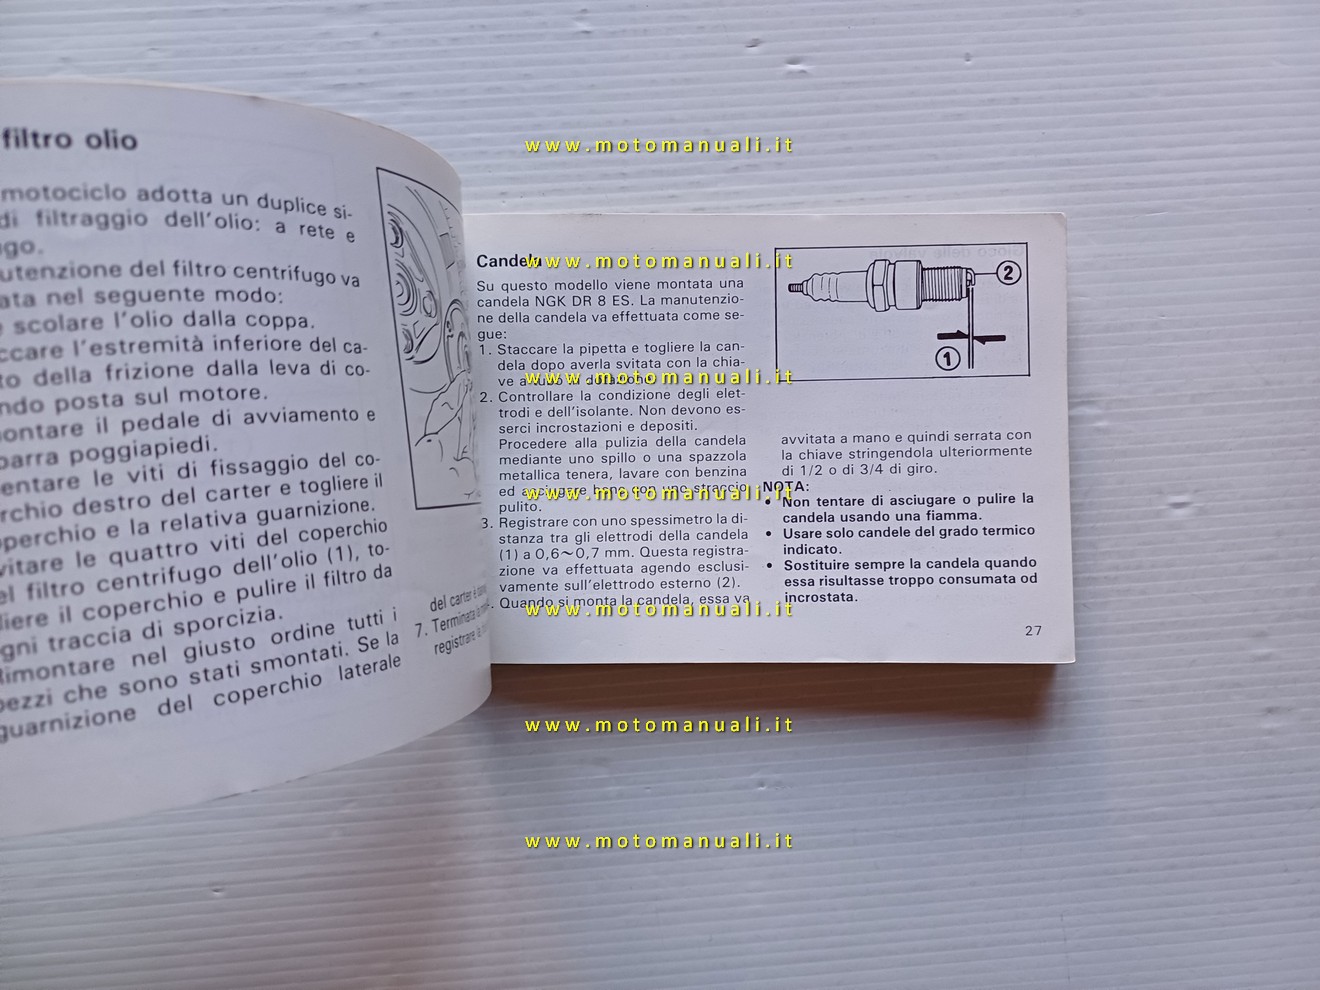 filtro olio
motociclo adotta un duplice si-
di filtraggio dell'olio: a rete e
del filtro centrifugo va
nel seguente modo:
scolare l'olio dalla coppa.
l'estremità inferiore del ca-
della frizione dalla leva di co-
posta sul motore.
il pedale di avviamento e
poggiapiedi.
le viti di fissaggio del co-
destro del carter e togliere il
e la relativa guarnizione.
le quattro viti del coperchio
filtro centrifugo dell'olio (1), to-
il coperchio e pulire il filtro da
traccia di sporcizia.
nel giusto ordine tutti i
pezzi che sono stati smontati. Se la
guarnizione del coperchio laterale
del carter è
7. Terminata
registrare
Candela
Su questo modello viene montata una
candela NGK DR 8 ES. La manutenzio-
ne della candela va effettuata come se-
gue:
1. Staccare la pipetta e togliere la can-
dela dopo averla svitata con la chia-
ve a
2. Controllare la condizione degli elet-
trodi e dell'isolante. Non devono es-
serci incrostazioni e depositi.
Procedere alla pulizia della candela
mediante uno spillo o una spazzola
metallica tenera, lavare con benzina
ed asciugare bene con uno straccio
pulito.
3. Registrare con uno spessimetro la di-
stanza tra gli elettrodi della candela
(1) a 0,6~0,7 mm. Questa registra-
zione va effettuata agendo esclusi-
vamente sull'elettrodo esterno (2).
Quando si monta la candela, essa va
2
1
avvitata a mano e quindi serrata con
la chiave stringendola ulteriormente
di 1/2 o di 3/4 di giro.
NOTA:
• Non tentare di asciugare o pulire la
candela usando una fiamma.
• Usare solo candele del grado termico
indicato.
• Sostituire sempre la candela quando
essa risultasse troppo consumata od
incrostata.
27
www.motomanuali.it
www.motomanuali.it
www.motomanuali.it
www.motomanuali.it
www.motomanuali.it
www.motomanuali.it
www.motomanuali.it